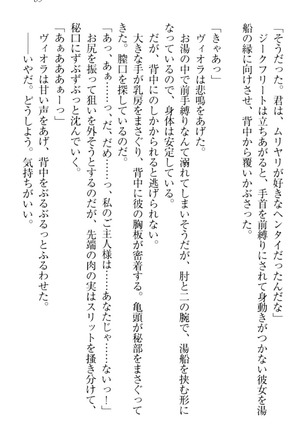 「そうだった。君は、ムリヤリが好きなヘンタイだったんだな」
ジークフリートは立ちあがると、手首を前縛りにされて身動きがつかない彼女を湯
船の縁に向けさせ、背中から覆いかぶさった。
「きゃあっ」
ヴィオラは悲鳴をあげた。
お湯の中で前手縛りなんて溺れてしまいそうだが、肘と二の腕で、湯船を挟む形に
なっているので、身体は安定している。
だが、背中にのしかかられると逃げられない。
大きな手が乳房をまさぐり、背中に彼の胸板が密着する。亀頭が秘部をまさぐって
きた。膣口を探しているのだ。
「だ、だめ……っ、だ、だめ……っ、私のご主人様は……あなたじゃ……ないっ！」
お尻を振って狙いを外そうとするのだが、先端の肉の実はスリットを掻き分けて、
秘口にずぶずぶっと沈んでいく。
「あぁあああぁーっ」
ヴィオラは甘い声をあげ、背中をぶるぶるっとふるわせた。
――いやだ。どうしよう。気持ちがいい。